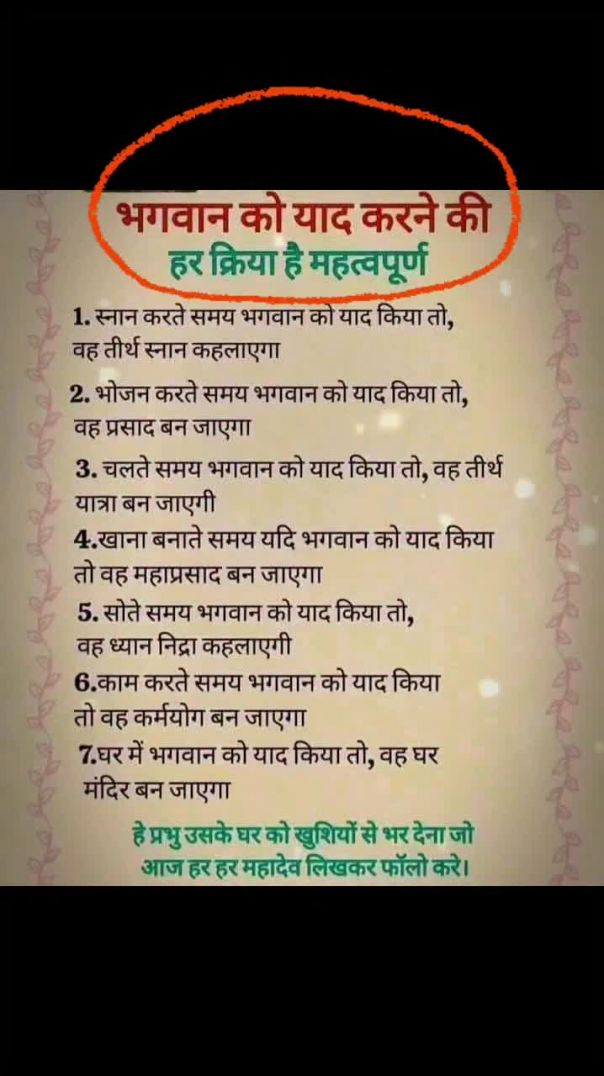 भगवान को याद करने की
हर क्रिया है महत्वपूर्ण
1. स्नान करते समय भगवान को याद किया तो,
वह तीर्थ स्नान कहलाएगा
2. भोजन करते समय भगवान को याद किया तो,
वह प्रसाद बन जाएगा
3. चलते समय भगवान को याद किया तो, वह तीर्थ
यात्रा बन जाएगी
4.खाना बनाते समय यदि भगवान को याद किया
तो वह महाप्रसाद बन जाएगा
5. सोते समय भगवान को याद किया तो,
वह ध्यान निद्रा कहलाएगी
6.काम करते समय भगवान को याद किया
तो वह कर्मयोग बन जाएगा
7.घर में भगवान को याद किया तो, वह घर
मंदिर बन जाएगा
हे प्रभु उसके घर को खुशियों से भर देना जो
आज हर हर महादेव लिखकर फॉलो करे।